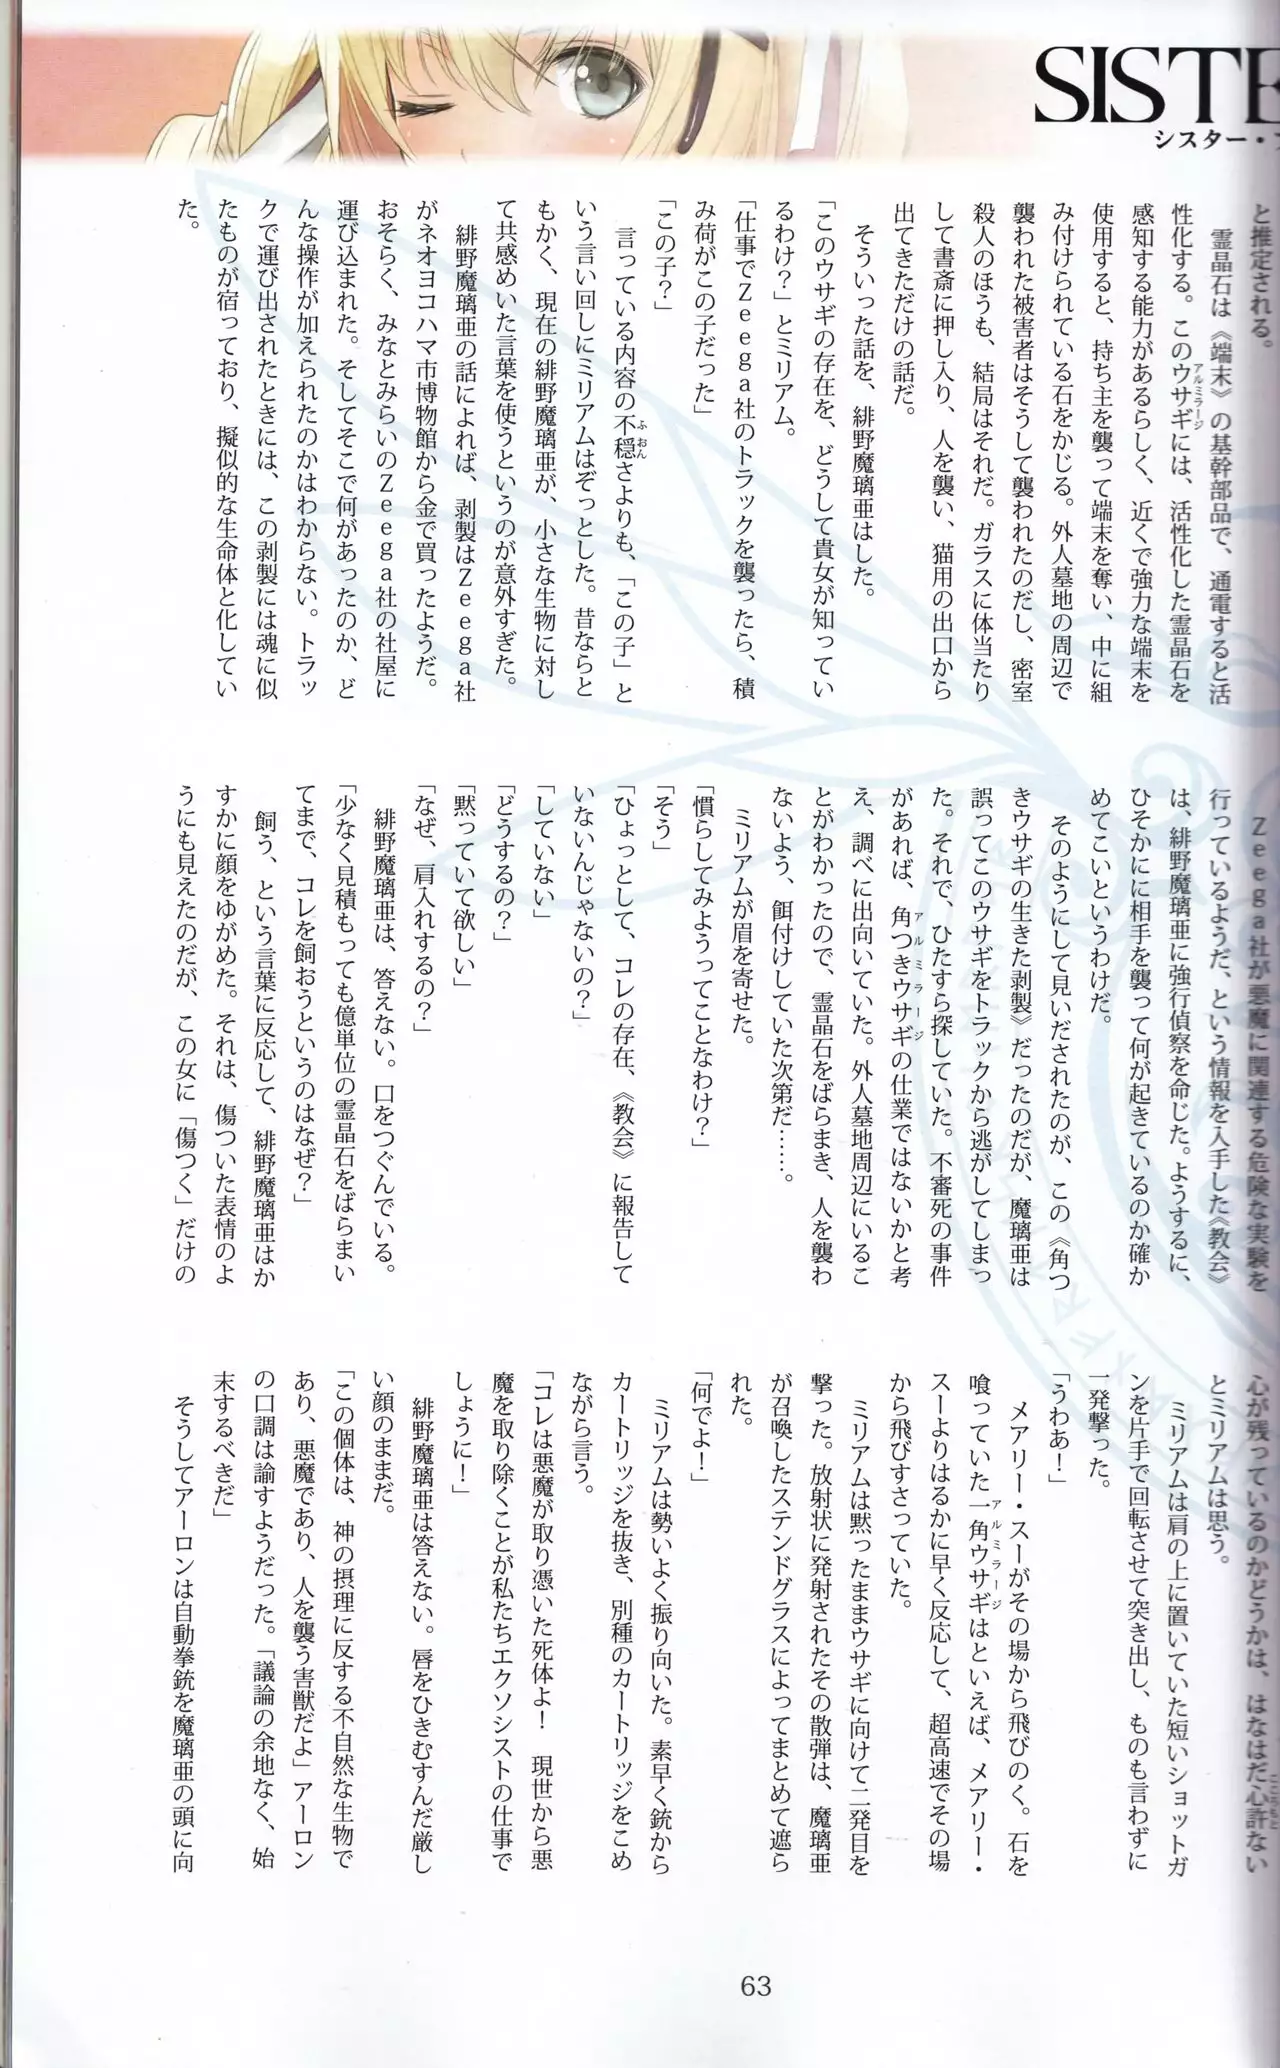 SISTE
シスター・
と推定される。
　霊晶石は《端末》の基幹部品で、通電すると活
性化する。このウサギには、活性化した霊晶石を
アルミラージ
感知する能力があるらしく、近くで強力な端末を
使用すると、持ち主を襲って端末を奪い、中に組
み付けられている石をかじる。外人墓地の周辺で
襲われた被害者はそうして襲われたのだし、密室
殺人のほうも、結局はそれだ。ガラスに体当たり
して書斎に押し入り、人を襲い、猫用の出口から
出てきただけの話だ。
　そういった話を、緋野魔璃亜はした。
「このウサギの存在を、どうして貴女が知ってい
るわけ？」とミリアム。
「仕事でＺｅｅｇａ社のトラックを襲ったら、積
み荷がこの子だった」
「この子？」
　言っている内容の不穏さよりも、「この子」と
ふおん
いう言い回しにミリアムはぞっとした。昔ならと
もかく、現在の緋野魔璃亜が、小さな生物に対し
て共感めいた言葉を使うというのが意外すぎた。
　緋野魔璃亜の話によれば、剥製はＺｅｅｇａ社
がネオヨコハマ市博物館から金で買ったようだ。
おそらく、みなとみらいのＺｅｅｇａ社の社屋に
運び込まれた。そしてそこで何があったのか、ど
んな操作が加えられたのかはわからない。トラッ
クで運び出されたときには、この剥製には魂に似
たものが宿っており、擬似的な生命体と化してい
た。
　Ｚｅｅｇａ社が悪魔に関連する危険な実験を
行っているようだ、という情報を入手した《教会》
は、緋野魔璃亜に強行偵察を命じた。ようするに、
ひそかにに相手を襲って何が起きているのか確か
めてこいというわけだ。
　そのようにして見いだされたのが、この《角つ
きウサギの生きた剥製》だったのだが、魔璃亜は
誤ってこのウサギをトラックから逃がしてしまっ
た。それで、ひたすら探していた。不審死の事件
があれば、角つきウサギの仕業ではないかと考
アルミラージ
え、調べに出向いていた。外人墓地周辺にいるこ
とがわかったので、霊晶石をばらまき、人を襲わ
ないよう、餌付けしていた次第だ……。
　ミリアムが眉を寄せた。
「慣らしてみようってことなわけ？」
「そう」
「ひょっとして、コレの存在、《教会》に報告して
いないんじゃないの？」
「していない」
「どうするの？」
「黙っていて欲しい」
「なぜ、肩入れするの？」
　緋野魔璃亜は、答えない。口をつぐんでいる。
「少なく見積もっても億単位の霊晶石をばらまい
てまで、コレを飼おうというのはなぜ？」
　飼う、という言葉に反応して、緋野魔璃亜はか
すかに顔をゆがめた。それは、傷ついた表情のよ
うにも見えたのだが、この女に「傷つく」だけの
心が残っているのかどうかは、はなはだ心許ない
こころもと
とミリアムは思う。
　ミリアムは肩の上に置いていた短いショットガ
ンを片手で回転させて突き出し、ものも言わずに
一発撃った。
「うわあ！」
　メアリー・スーがその場から飛びのく。石を
喰っていた一角ウサギはといえば、メアリー・
アルミラージ
スーよりはるかに早く反応して、超高速でその場
から飛びすさっていた。
　ミリアムは黙ったままウサギに向けて二発目を
撃った。放射状に発射されたその散弾は、魔璃亜
が召喚したステンドグラスによってまとめて遮ら
れた。
「何でよ！」
　ミリアムは勢いよく振り向いた。素早く銃から
カートリッジを抜き、別種のカートリッジをこめ
ながら言う。
「コレは悪魔が取り憑いた死体よ！　現世から悪
魔を取り除くことが私たちエクソシストの仕事で
しょうに！」
　緋野魔璃亜は答えない。唇をひきむすんだ厳し
い顔のままだ。
「この個体は、神の摂理に反する不自然な生物で
あり、悪魔であり、人を襲う害獣だよ」アーロン
の口調は諭すようだった。「議論の余地なく、始
末するべきだ」
　そうしてアーロンは自動拳銃を魔璃亜の頭に向
63